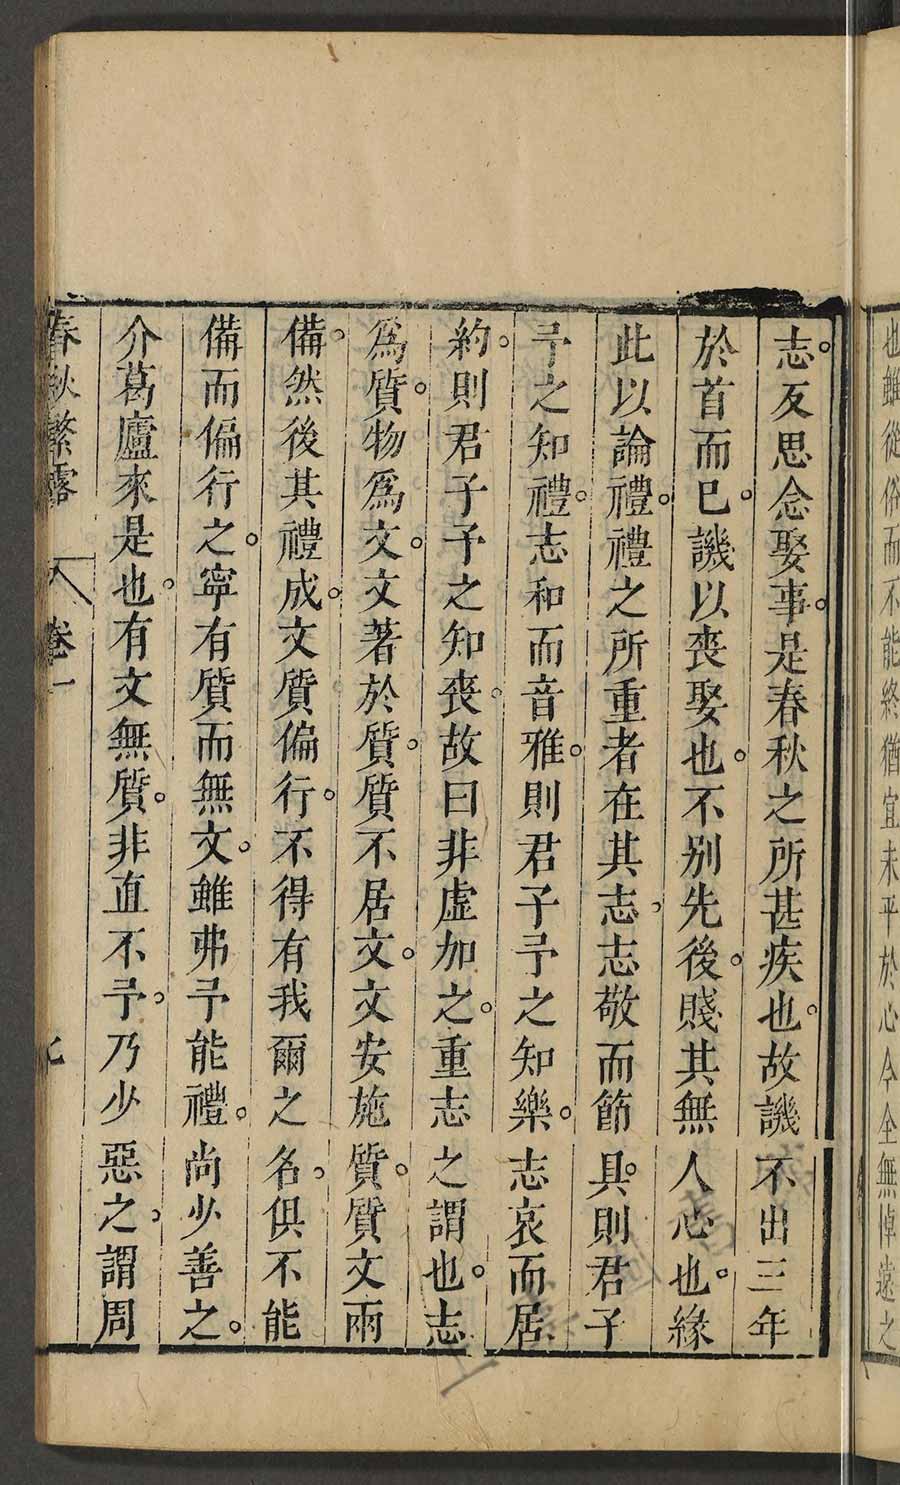 也雖從俗而不能終猶宜未平於心今全無悼遠之
志反思念娶事是春秋之所甚疾也故譏不出三年
於首而已譏以喪娶也不别先後賤其無人心也緣
此以論禮禮之所重者在其志志敬而節具則君子
予之知禮志和而音雅則君子予之知樂志哀而居
約則君子予之知喪故曰非虛加之重志之謂也志
爲質物爲文文著於質質不居文文安施質質文兩
備然後其禮成文質偏行不得有我爾之名俱不能
備而偏行之寧有質而無文雖弗予能禮尚少善之
介葛廬來是也有文無質非直不予乃少惡之謂周
春秋繁露 卷一